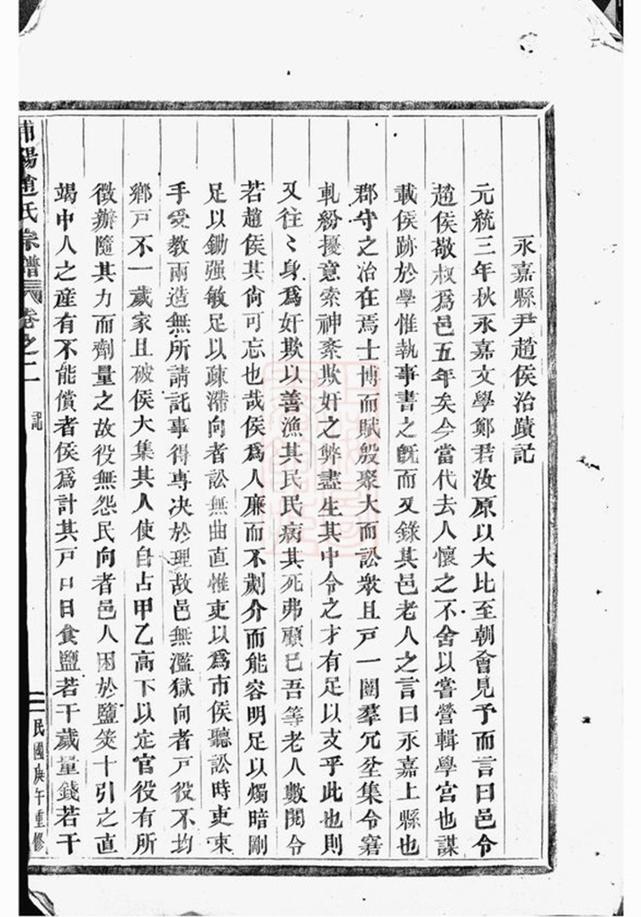 永嘉縣尹趙侯治蹟記
元統三年秋永嘉文學鄭君汝原以大比至朝會見予而言曰邑令
趙侯敬叔爲邑五年矣今當代去人懷之不舍以嘗營輯學宮也謀
載侯跡於學惟執事書之旣而又錄其邑老人之言曰永嘉上縣也
郡守之治在焉士博而賦殷聚大而訟衆且戸一闢羣冗坌集令窘
軋紛擾意索神紊欺奸之弊盡生其中令之才有足以支乎此也則
又往〻身爲奸欺以善漁其民民病其死弗顧已吾等老人數閱令
若趙侯其尙可忘也哉侯爲人廉而不劌介而能容明足以燭暗剛
足以鋤强敏足以疎滯向者訟無曲直惟吏以爲市侯聽訟時吏束
手受教兩造無所請託事得専决於理故邑無濫獄向者戸役不均
鄉戸不一歲家且破侯大集其人使自占甲乙高下以定官役有所
徵辦隨其力而劑量之故役無怨民向者邑人困於鹽筴十引之直
竭中人之産有不能償者侯爲計其戸口日食鹽若干歲量錢若干
浦陽趙氏宗譜 卷之二 記 民國庚午重修